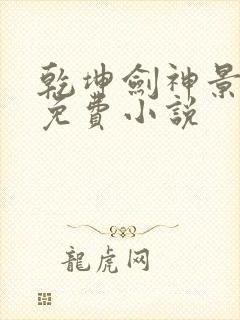 乾坤劍神景
免費小說
龍虎网